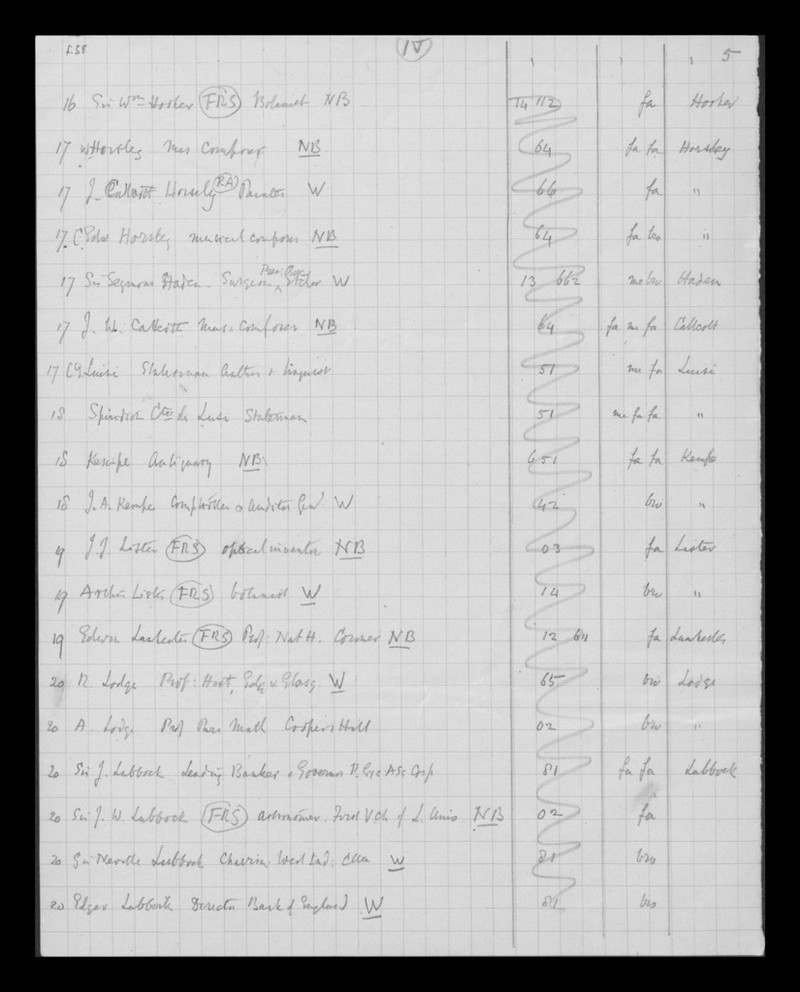 f.58 IV 5
16 Sir Wm Hooker FRS Botanist NB 14 112 fa Hooker
17 W Horsley Mus Composer NB 64 fa fa Horsley
17 J. Callcott Horsley RA Painter W 66 fa "
17 C Edw Horsley musical composer NB 64 fa bro "
17 Sir Seymour Haden Surgeon, Etcher W 13 662 me bro Haden
17 J. W. Callcott Mus. Composer NB 64 fa me fa Callcott
17 Lusi Statesman author & linguist 51 me fa Lusi
18 Spiridion Cte de Lusi Statesman 51 me fa fa "
18 Kempe Antiquary NB 651 fa fa Kempe
18 J. A. Kempe Comptroller & Auditor Genl W 42 bro "
19 J. J. Lister FRS optical inventor NB 03 fa Lister
19 Arthur Lister FRS botanist W 14 bro "
19 Edwin Lankester FRS Prof: Nat H. Coroner NB 12 611 fa Lankester
20 R. Lodge Prof: Hist, Edin & Glasg. W 65 bro Lodge
20 A. Lodge Prof Pure Math Coopers Hill 02 bro "
20 Sir J. Lubbock Leading Banker & Governor R. Exc Ass Corp 81 fa fa Lubbock
20 Sir J. W. Lubbock FRS astronomer. First V Ch of L. Univ NB 02 fa
20 Sir Neville Lubbock Chairm. West Ind. W 81 bro
20 Edgar Lubbock Director Bank of England W 81 bro